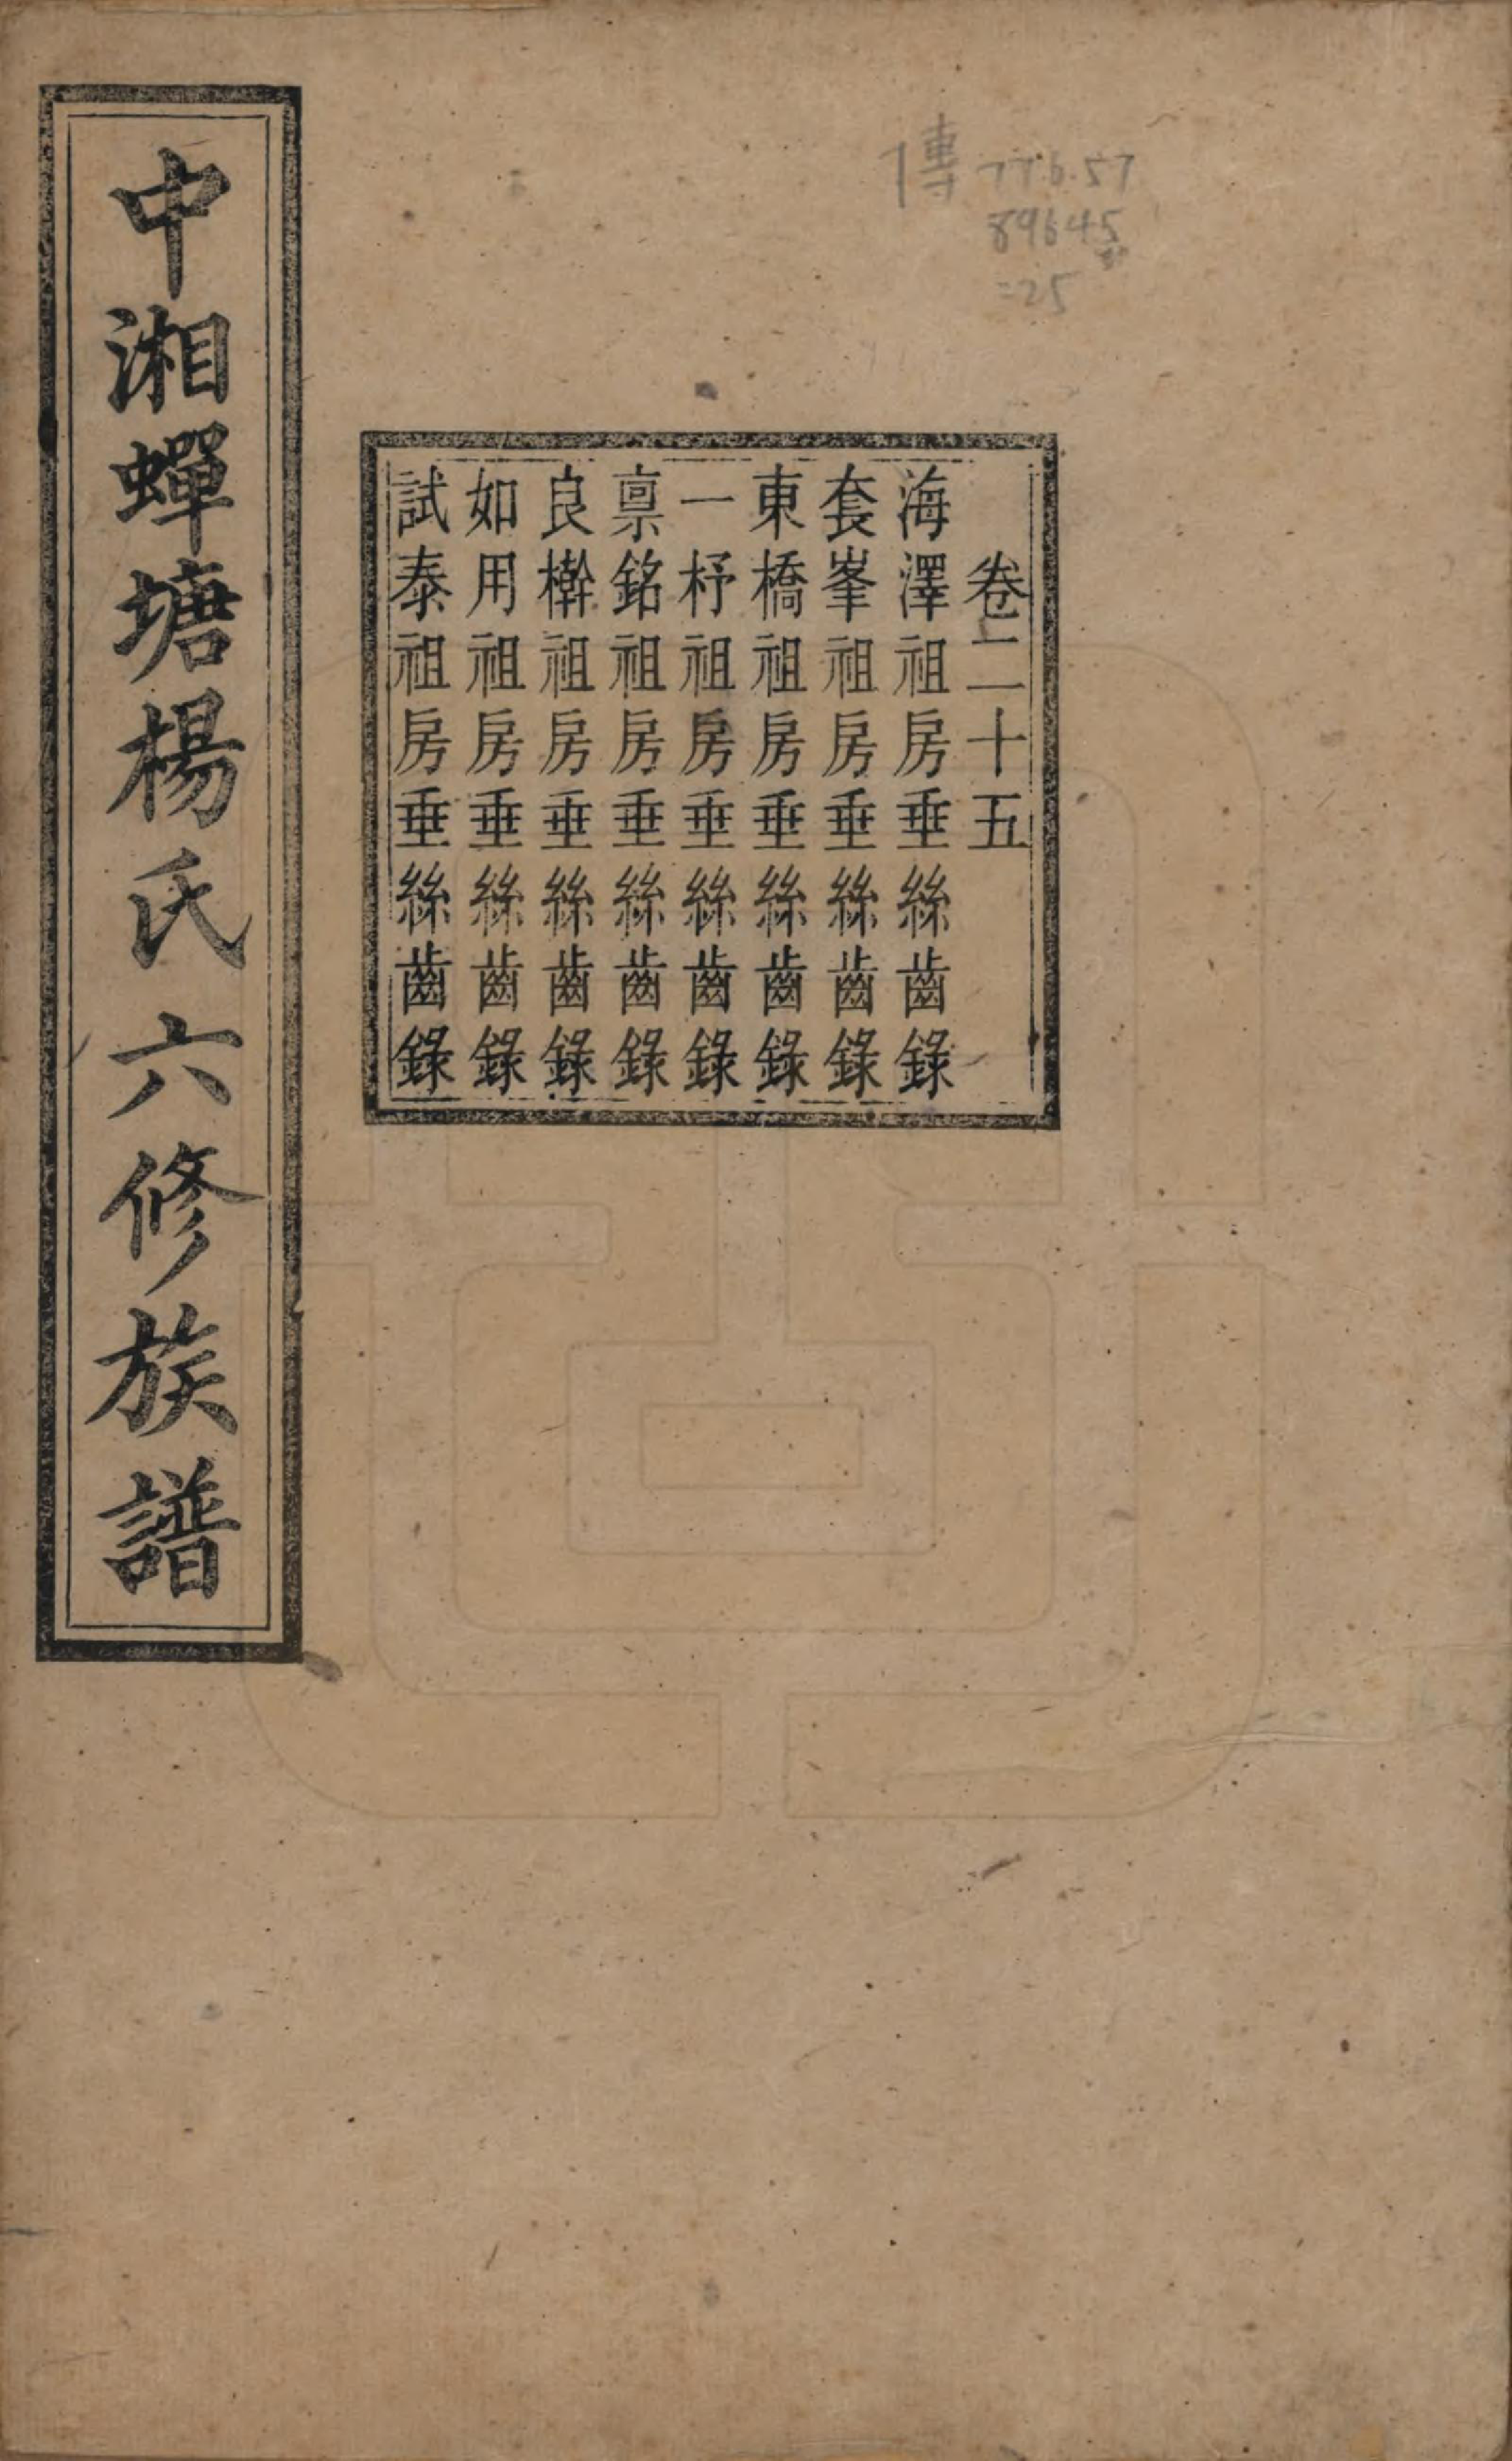 中湘蟬塘楊氏六修族譜
卷二十五
海澤祖房垂絲齒錄
套峯祖房垂絲齒錄
東橋祖房垂絲齒錄
一杼祖房垂絲齒錄
稟銘祖房垂絲齒錄
良檊祖房垂絲齒錄
如用祖房垂絲齒錄
試泰祖房垂絲齒錄
傳 776.57
89645
=25